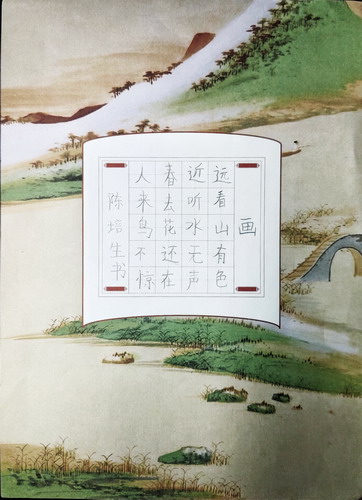 画
远看山有色
近听水无声
春去花还在
人来鸟不惊
陈培生书